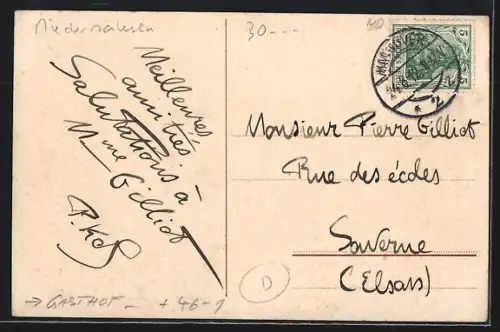 Niedersachsen
30.--
Meilleures
amitiés
Salutations à
Mme Gilliot
P. Kd
HANNOVER
5 5
* 2
Monsieur Pierre Gilliot
Rue des écoles
Saverne
(Elsass)
D
→ GASTHOF -